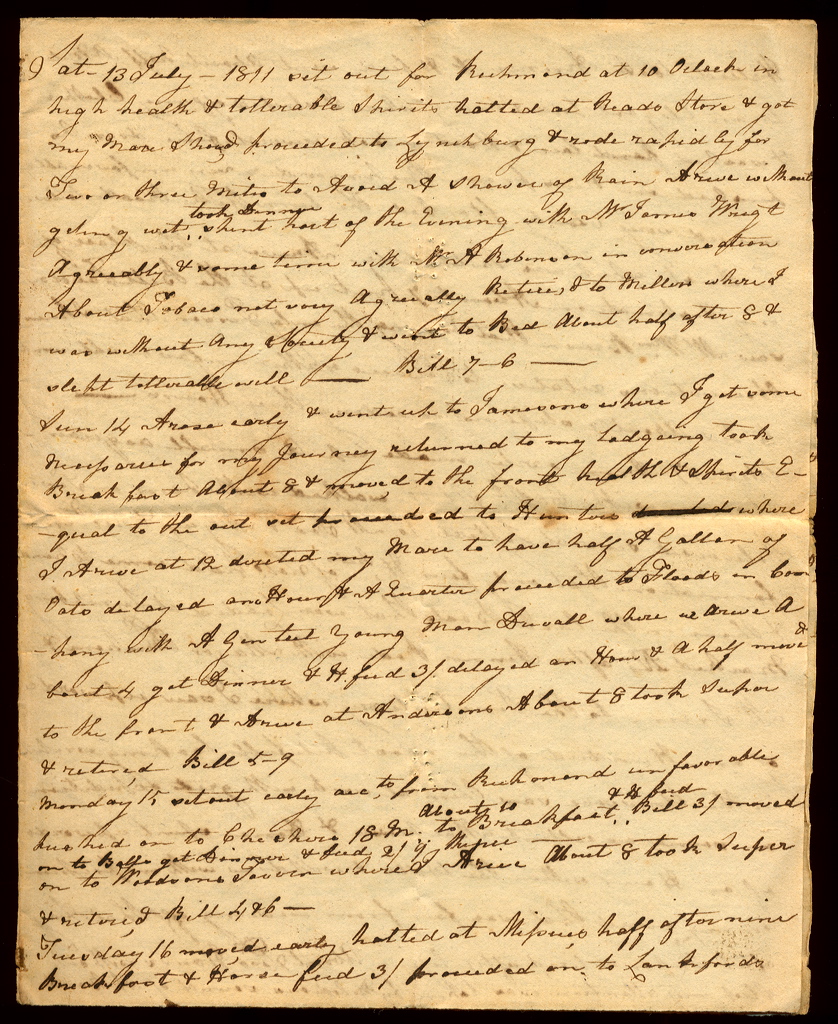 Sat - 13 July - 1811 set out for Richmond at 10 Oclock in
high health & tollerable Spirits halted at Reads Store & got
my Mare Shoed proceeded to Lynchburg & rode rapidly for
Two or three Miles to Avoid A shower of Rain Arive without
geting wet took Dinner spent part of the Evening with Mr James Wright
Agreeably & some time with Mr A Robinson in conversation
About Tobaco not very Agreeably Retired to Millers where I
was without Any Society & went to Bed About half after 8 &
slept tollerable well — Bill 7-6 —
Sun 14 Arose early & went up to Jamesons where I got some
for my Journey returned to my Lodgeing took
Breakfast About 8 & moved to the front health & Spirits E-
-qual to the out set proceeded to Hunters where
I Arive at 12 directed my Mare to have half A Gallon of
Oats delayed an Hour & A Quarter proceeded to Floods in Com
-pany with A Genteel Young Man Duvall where we Arive A
bout 4 got Dinner & H. feed 3/ delayed an Hour & A half moved
to the front & Arive at Andersons About 8 took Super
& retired Bill 5-9
Monday 15 set out early acct from Richmond unfavorable
pushed on to 18 M. About 10 to Breakfast & H feed Bill 3/ moved
on to get Dinner & feed 2/
on to Woodsons Tavern where I Arive About 8 took Super
& retired Bill 4&6 —
Tuesday 16 moved early halted at half after nine
Breakfast & Horse feed 3/ proceeded on to Lankfords